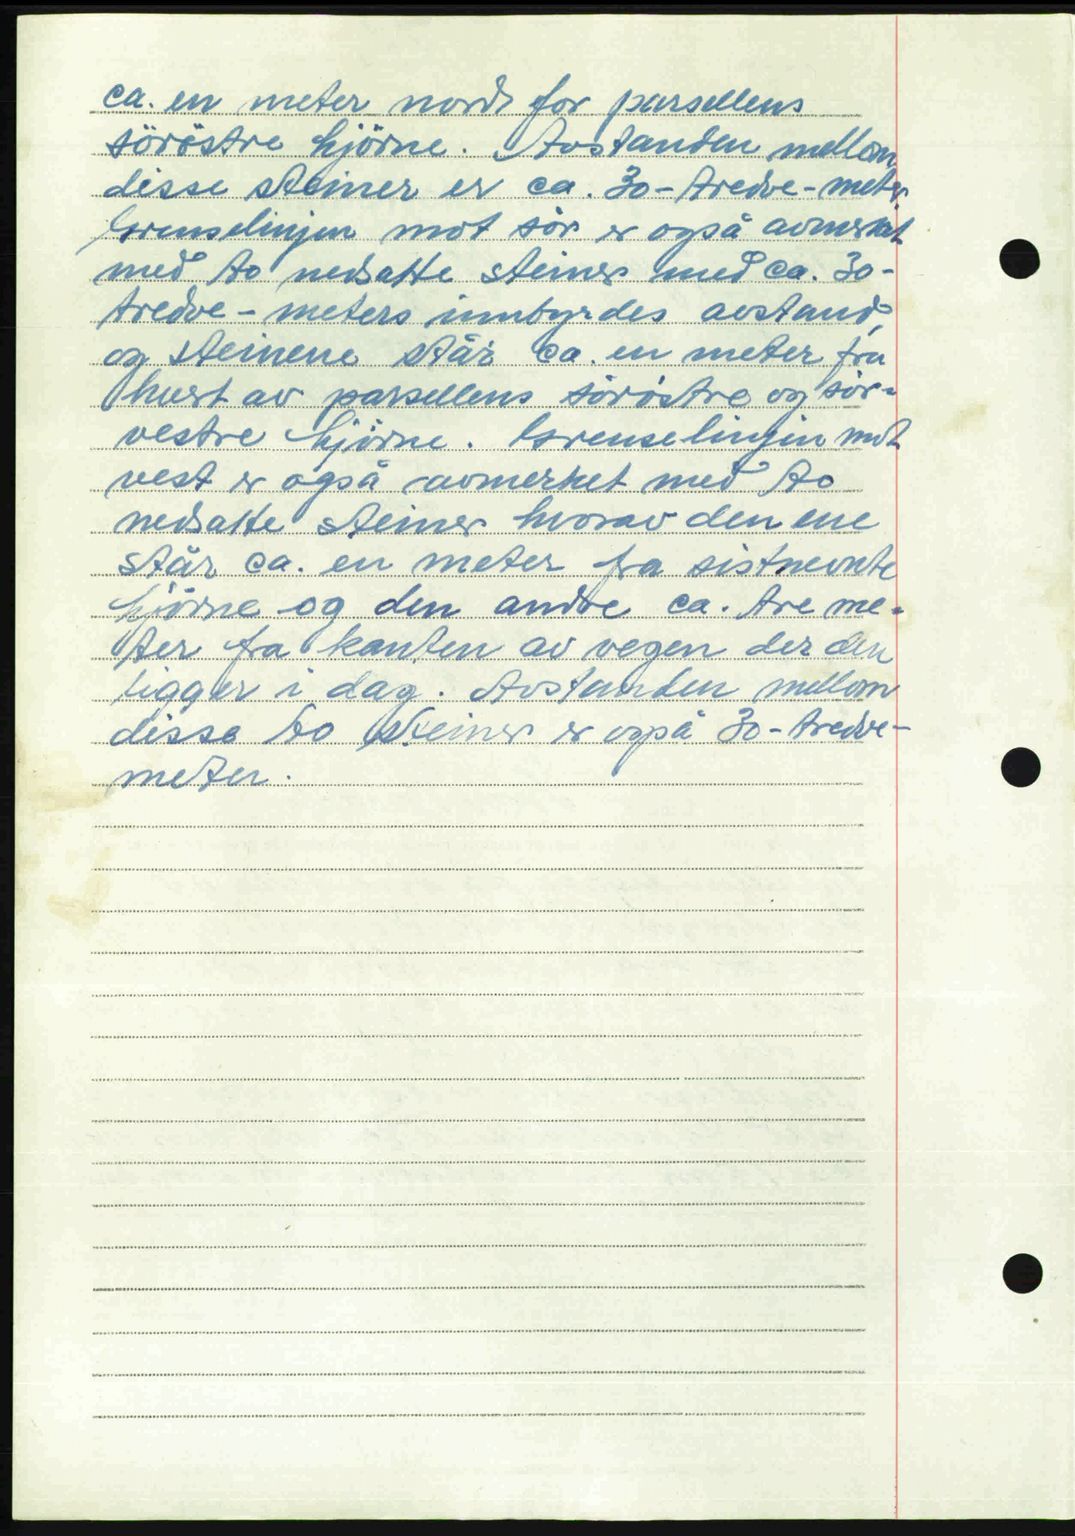 ca. en meter nord for parsellens
söröstre hjörne. Avstanden mellom
disse steiner er ca. 30-tredve-meter.
Grenselinjen mot sör er også avmerket
med to nedsatte steiner med ca. 30-
tredve-meters innbyrdes avstand,
og steinene står ca. en meter fra
hvert av parsellens söröstre og sör-
vestre hjörne. Grenselinjen mot
vest er også avmerket med to
nedsatte steiner hvorav den ene
står ca. en meter fra sistnevnte
hjörne og den andre ca. tre me-
ter fra kanten av vegen der den
ligger i dag. Avstanden mellom
disse to steiner er også 30-tredve-
meter.